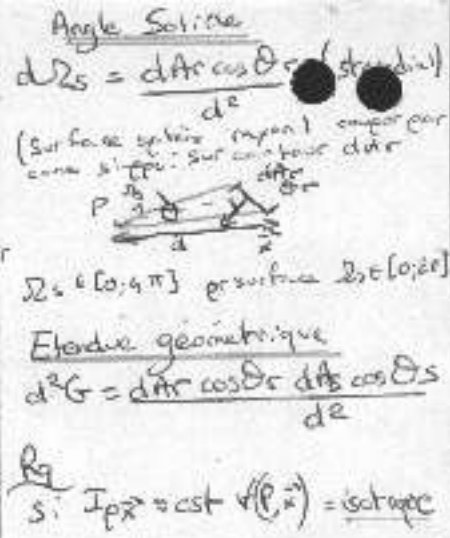 Angle Solide
dΩs = dAr cos θr (stéradial)
d²
(Surface sphère rayon 1 coupée par
cone s'appui sur contour dAr
dAr
P θr
d x⃗
Ωs ∈ [0; 4π] pr surface Ωs ∈ [0; 2π]
Etendue géométrique
d²G = dAr cos θr dAs cos θs
d²
Rq
si I_Px⃗ = cst ∀(P, x⃗) = isotrope